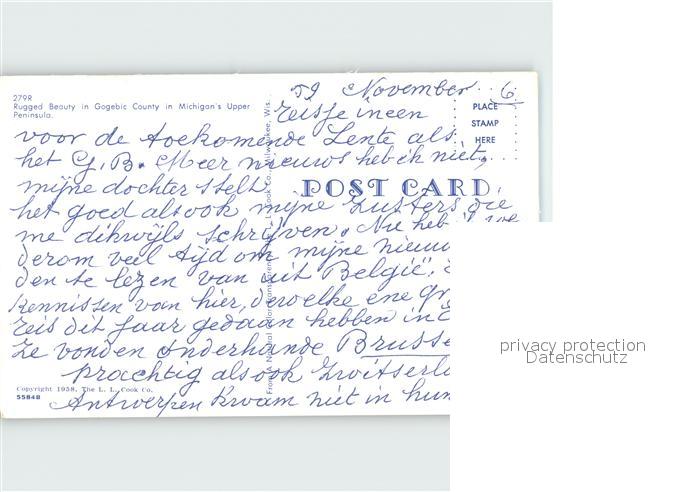 279R
Rugged Beauty in Gogebic County in Michigan's Upper
Peninsula.
59 November 6
PLACE
STAMP
HERE
reisje ineen
voor de toekomende Lente als
het G.B. Meer nieuws heb ik niet,
mijne dochter stelt
POST CARD
het goed alsook mijne Zusters die
me dikwijls schrijven. Nu heb
derom veel tijd om mijne
den te lezen van uit België,
Kennissen van hier, derwelke ene
reis dit jaar gedaan hebben in
Ze vonden onderhande Brusse
prachtig alsook Zwitserl
Copyright 1958, The L. L. Cook Co.
55848
Antwerpen kwam niet in hun
privacy protection
Datenschutz